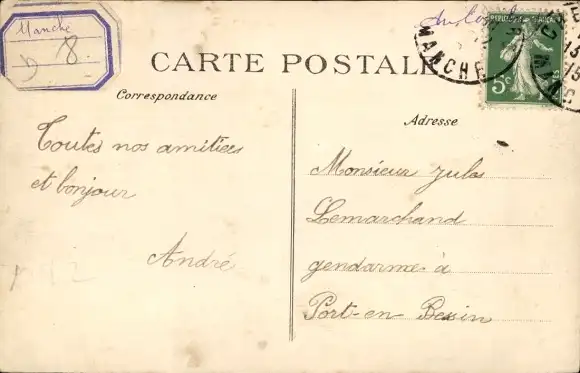 Manche
8
CARTE POSTALE
RÉPUBLIQUE FRANÇAISE
5c
MANCHE
Correspondance
Adresse
Toutes nos amitiées
et bonjour
André
Monsieur jules
Lemarchand
gendarme à
Port-en-Bessin